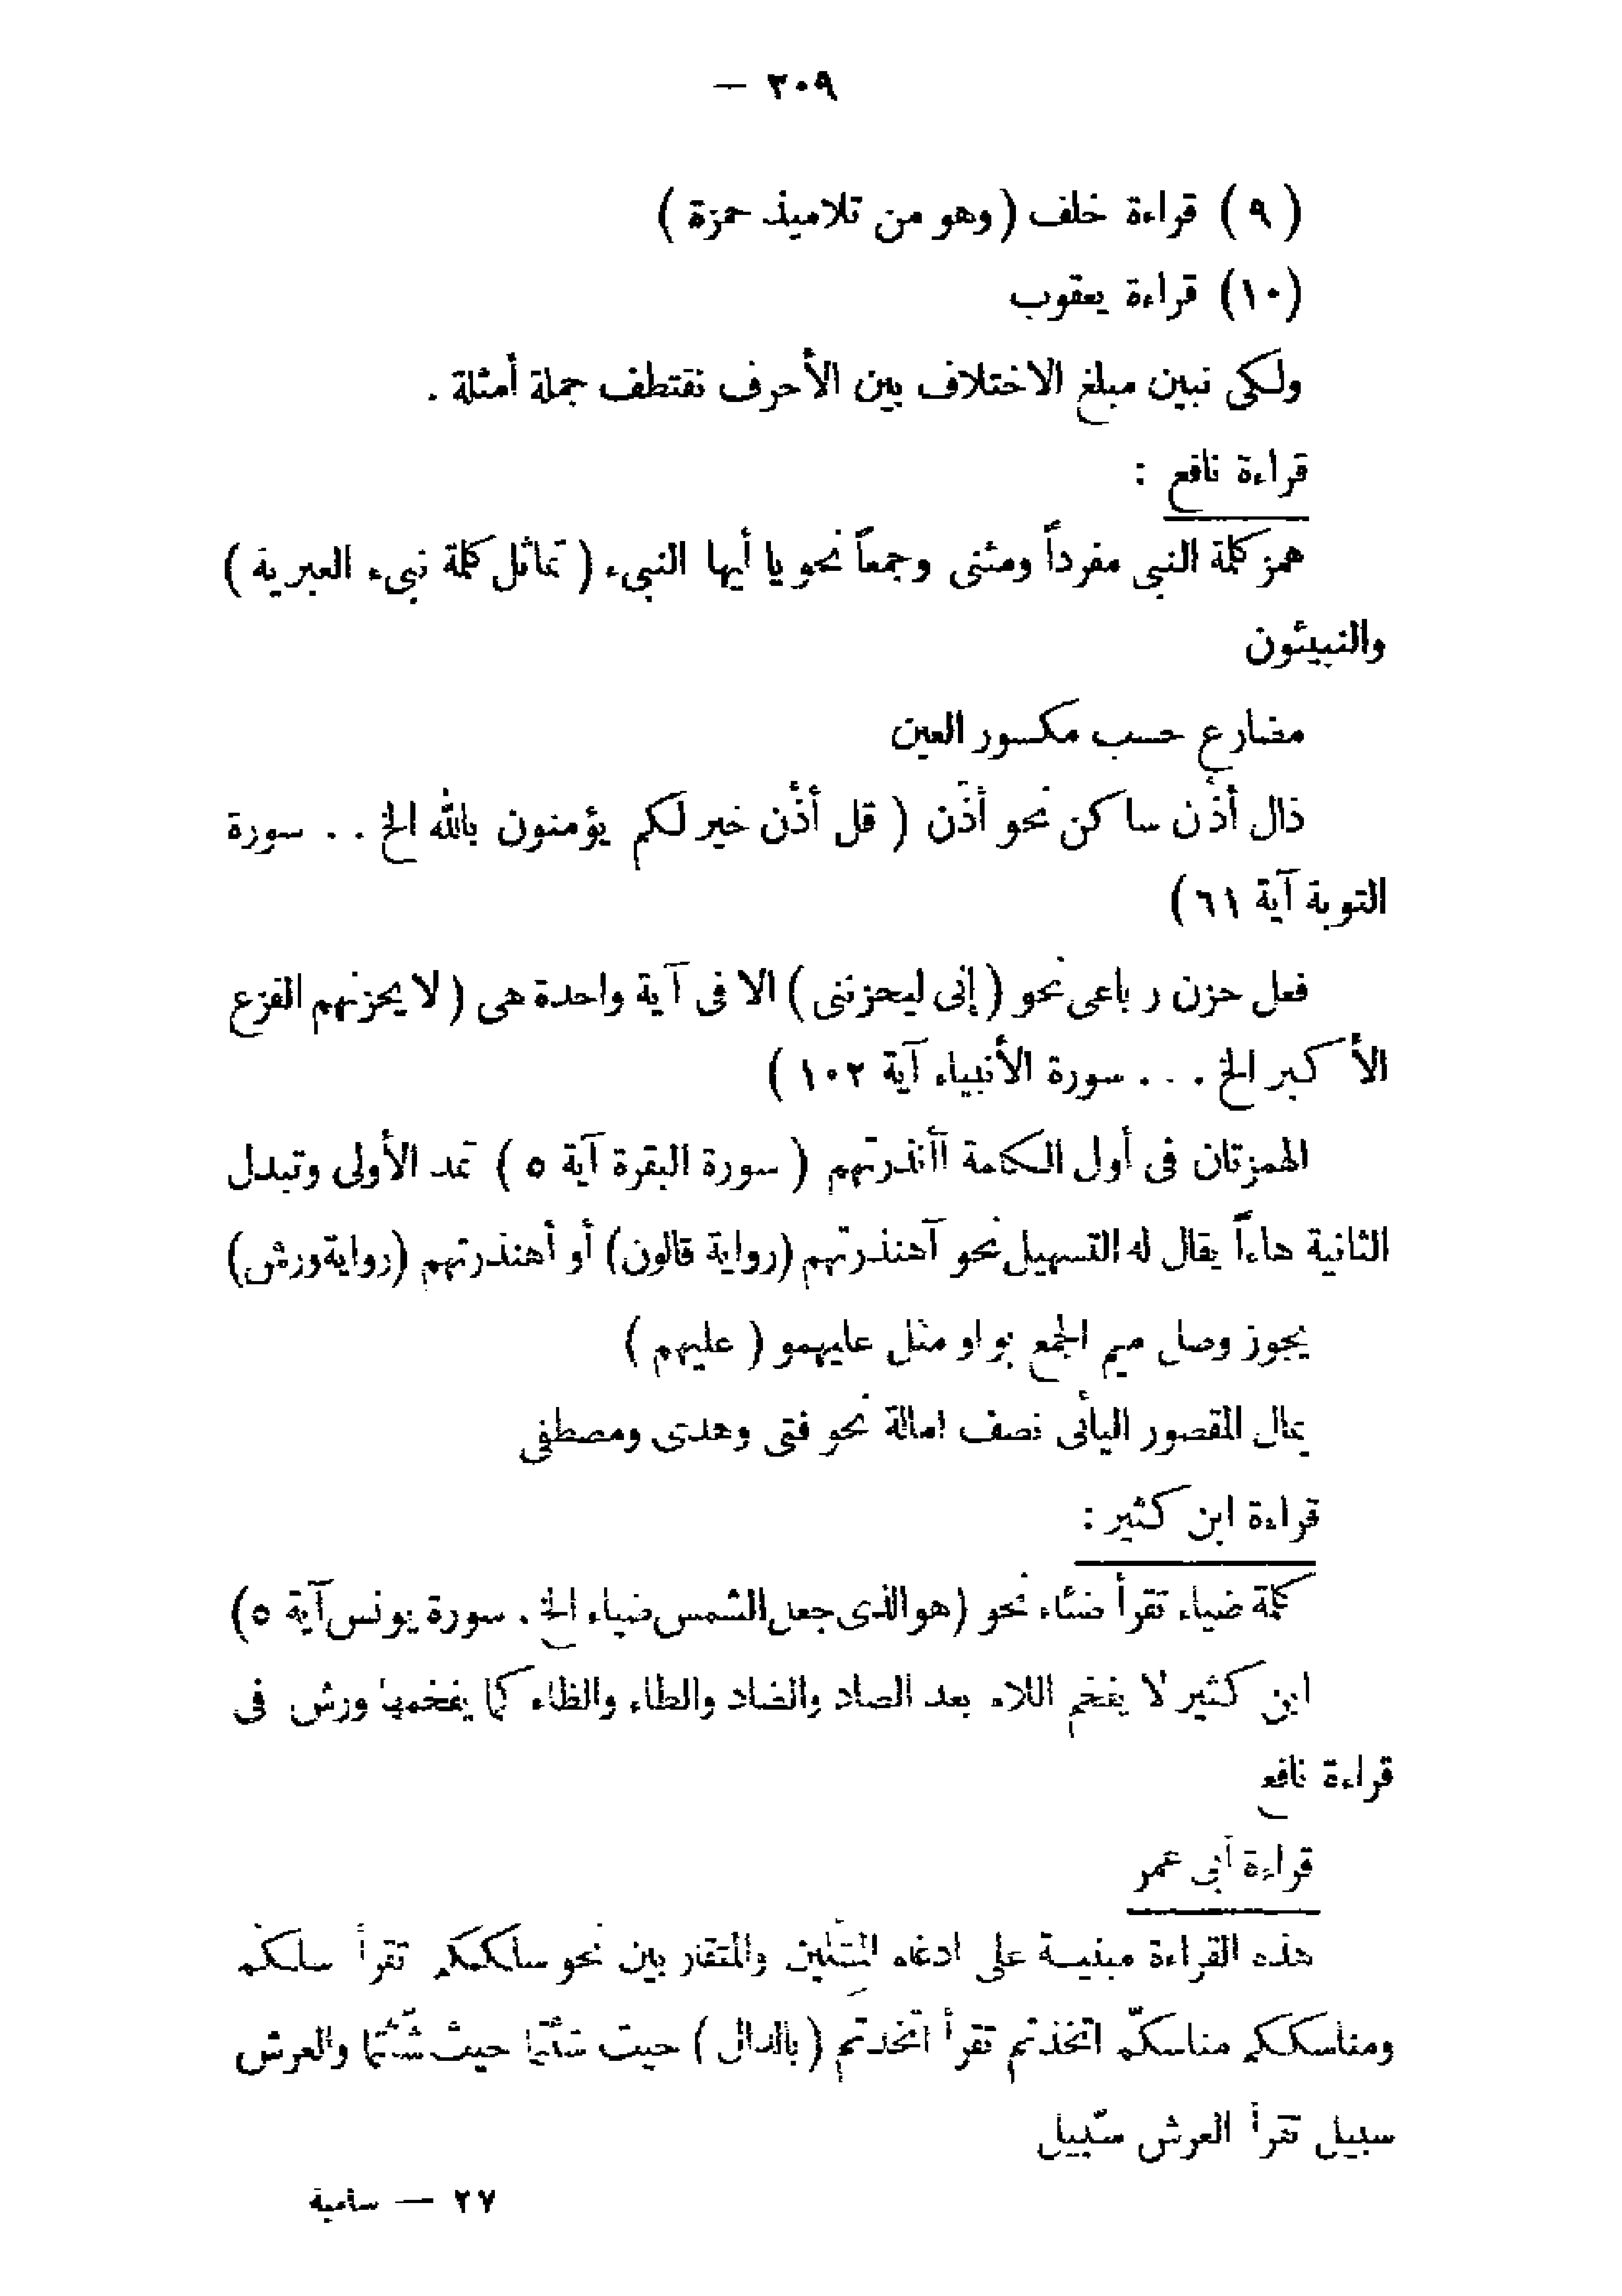 — ٢٠٩
( ٩ ) قراءة خلف ( وهو من تلاميذ حمزة )
(١٠) قراءة يعقوب
ولكى نبين مبلغ الاختلاف بين الأحرف نقتطف جملة أمثلة .
قراءة نافع :
همز كلمة النبى مفرداً ومثنى وجمعاً نحو يا أيها النبىء ( تماثل كلمة نبىء العبرية )
والنبيئون
مضارع حسب مكسور العين
ذال أذُن ساكن نحو أذْن ( قل أذْن خير لكم يؤمنون بالله الخ . . سورة
التوبة آية ٦١ )
فعل حزن رباعى نحو ( إنى ليحزننى ) الا فى آية واحدة هى ( لا يحزنهم الفزع
الأكبر الخ . . . سورة الأنبياء آية ١٠٢ )
الهمزتان فى أول الكلمة أأنذرتهم ( سورة البقرة آية ٥ ) تمد الأولى وتبدل
الثانية هاءاً يقال له التسهيل نحو آهنذرتهم (رواية قالون) أو أهنذرتهم (رواية ورش)
يجوز وصل ميم الجمع بواو مثل عليهمو ( عليهم )
يمال المقصور اليأئى نصف امالة نحو فتى وهدى ومصطفى
قراءة ابن كثير :
كلمة ضياء تقرأ ضئاء نحو (هو الذى جعل الشمس ضياء الخ . سورة يونس آية ٥)
ابن كثير لا يفخم اللام بعد الصاد والضاد والطاء والظاء كما يفخمها ورش فى
قراءة نافع
قراءة أبى عمر
هذه القراءة مبنية على ادغام المثلين والمتقاربين نحو سلككم تقرأ سلكم
ومناسككم مناسكّم اتخذتم تقرأ اتخدتم ( بالدال ) حيث شئتما حيث شّئتما والعرش
سبيل تقرأ العرش سّبيل
٢٧ — سامية